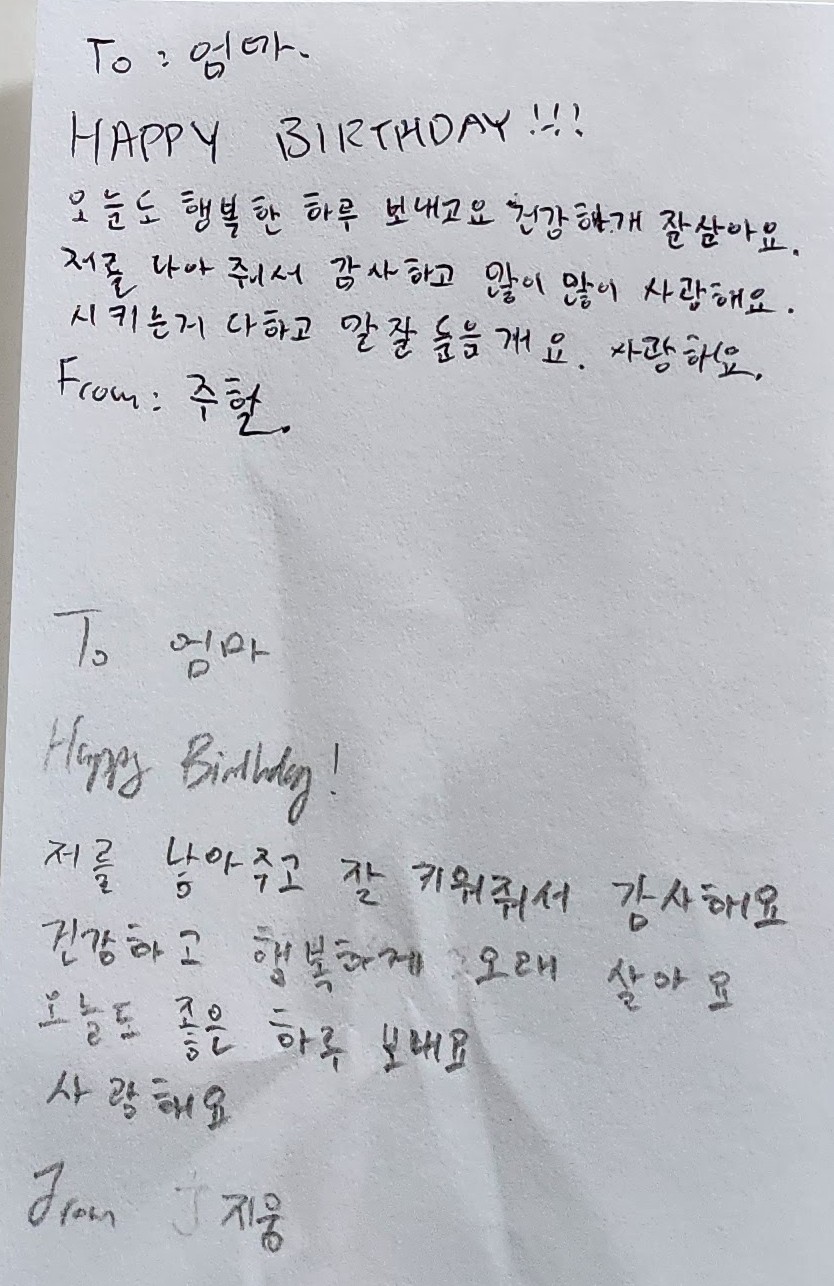 To : 엄마.
HAPPY BIRTHDAY!!!
오눈도 행복한 하루 보내고요 건강하개 잘살아요.
저를 나아 줘서 감사하고 많이 많이 사랑해요.
시키는거 다하고 말잘 들음게요. 사랑해요.
From : 주헌.
To 엄마
Happy Birthday!
저를 낳아주고 잘 키워줘서 감사해요
건강하고 행복하게 오래 살아요
오늘도 좋은 하루 보내요
사랑해요
From J 지웅